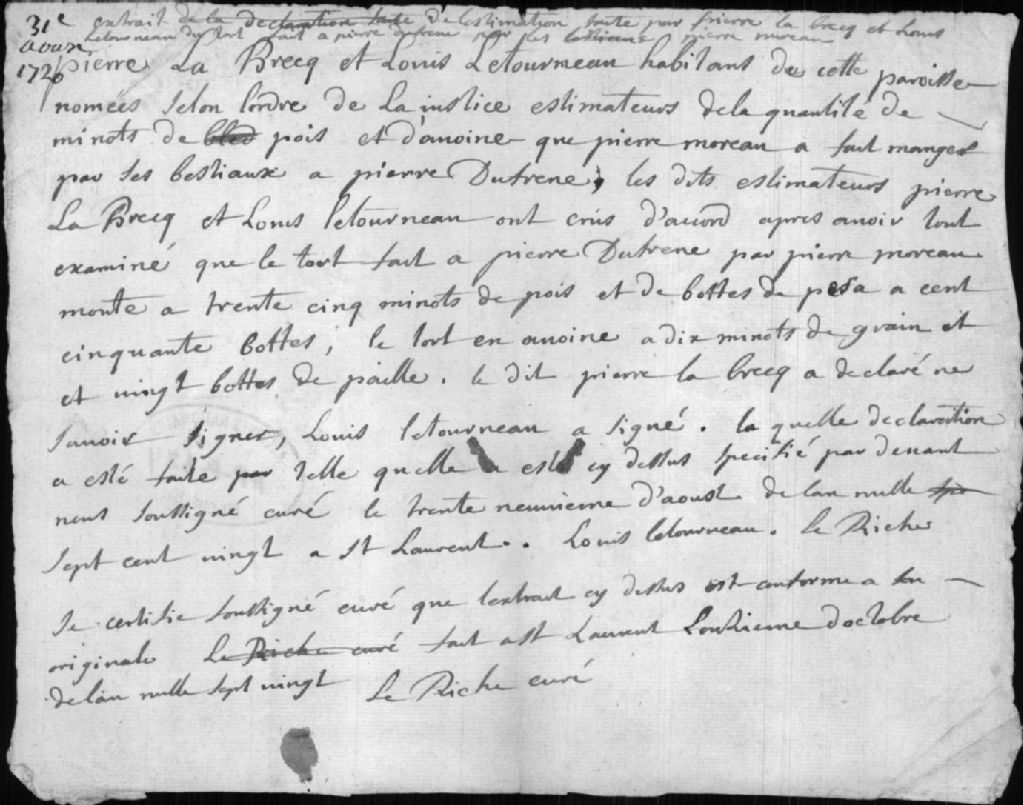 31e aoust 1720
extrait de la declaration faite de lestimation faite par pierre la brecq et Louis
letourneau du tort fait a pierre dufrene par les bestiaux pierre moreau
pierre La Brecq et Louis Letourneau habitans de cette paroisse
nomées selon lordre de La justice estimateurs dela quantité de
minots de bled pois et d'avoine que pierre moreau a fait manger
par ses bestiaux a pierre Dufrene, les dits estimateurs pierre
La Brecq et Louis letourneau ont crus d'accord apres avoir tout
examiné que le tort fait a pierre Dufrene par pierre moreau
monte a trente cinq minots de pois et de bottes de pesa a cent
cinquante bottes, le tort en avoine a dix minots de grain et
et vingt bottes de paille. le dit pierre la brecq a declaré ne
savoir signer, Louis letourneau a signé. la quelle declaration
a esté faite par telle quelle a esté cy dessus specifié par devant
nous soussigné curé le trente neuvieme d'aoust de lan mille
sept cent vingt a st Laurent. Louis letourneau. le Riche
Je certifie soussigné curé que lextrait cy dessus est conforme a son
originale Le Riche curé fait a st Laurent Lonzieme d'octobre
de lan mille sept vingt Le Riche curé